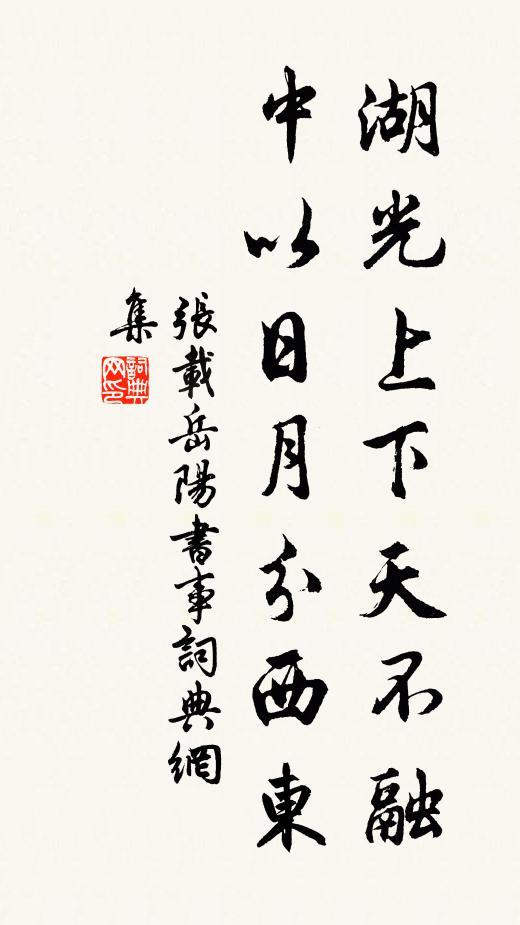 湖光上下天不融
中以日月分西東
張載岳陽書事詞典網
集
詞典
网印